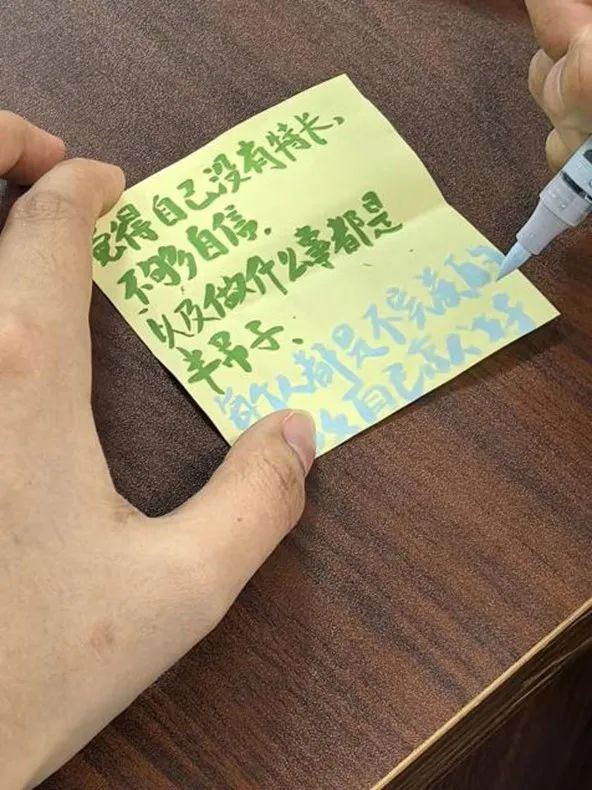 觉得自己没有特长、
不够自信.
以及做什么事都是
半吊子、
每个人都是不完美的
自己